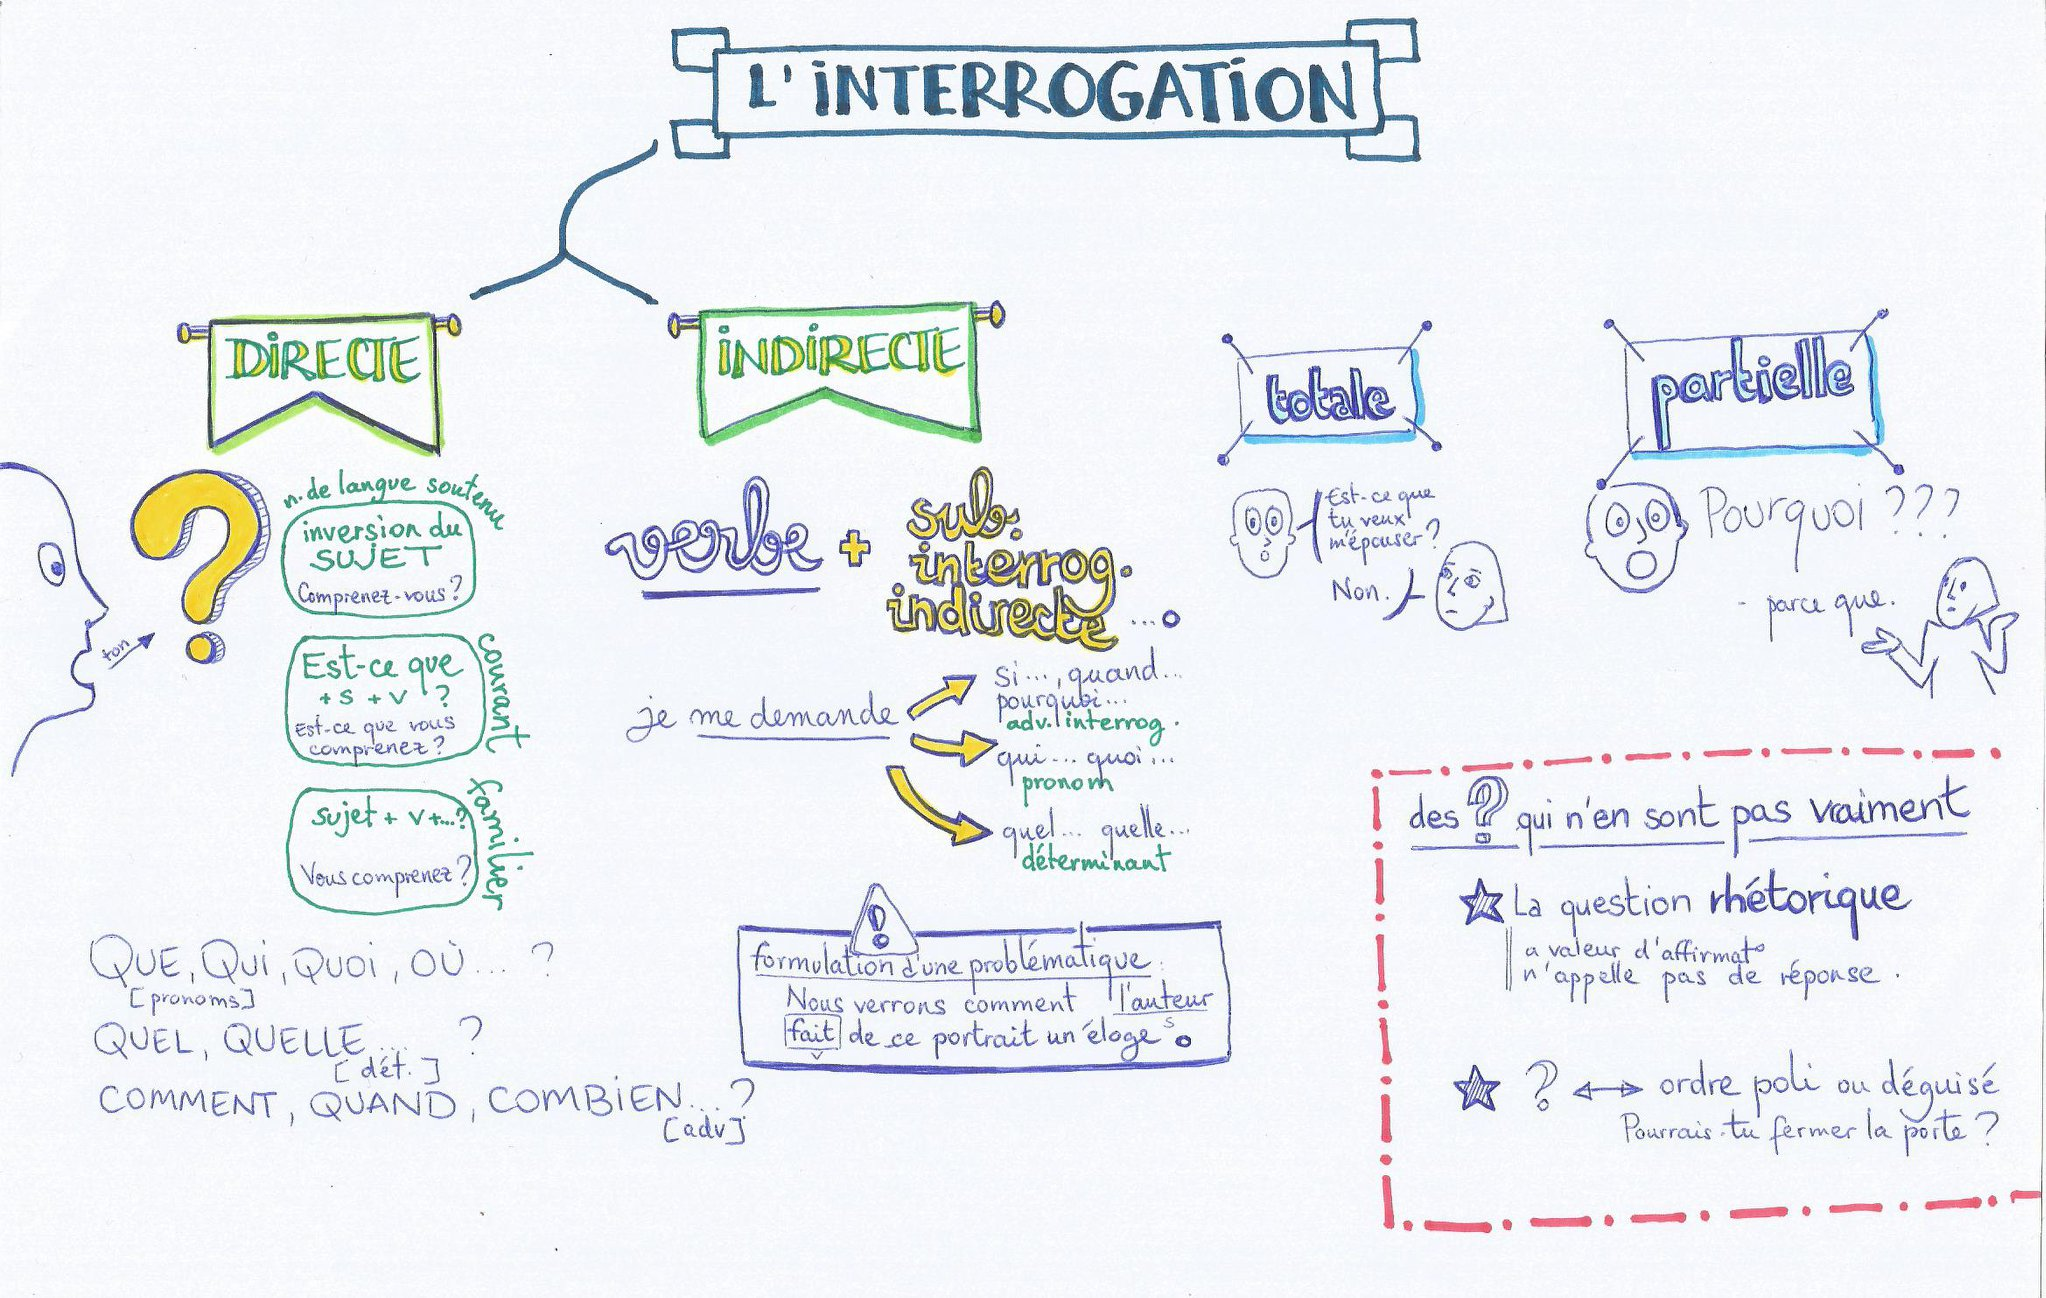 L'INTERROGATION
DIRECTE
n. de langue soutenu
inversion du
SUJET
Comprenez-vous ?
ton
Est-ce que
+ S + V ?
Est-ce que vous
comprenez ?
courant
sujet + V+...?
Vous comprenez ?
familier
QUE, QUI, QUOI, OÙ... ?
[pronoms]
QUEL, QUELLE... ?
[dét.]
COMMENT, QUAND, COMBIEN...?
[adv]
INDIRECTE
verbe + sub.
interrog.
indirecte ...
je me demande
si..., quand...
pourquoi...
adv. interrog.
qui... quoi...
pronom
quel... quelle...
déterminant
!
formulation d'une problématique :
Nous verrons comment l'auteur
S
fait de ce portrait un éloge.
V
totale
Est-ce que
tu veux
m'épouser ?
Non.
partielle
Pourquoi ???
- parce que.
des ? qui n'en sont pas vraiment
La question rhétorique
a valeur d'affirmat°
n'appelle pas de réponse.
? ↔ ordre poli ou déguisé
Pourrais-tu fermer la porte ?